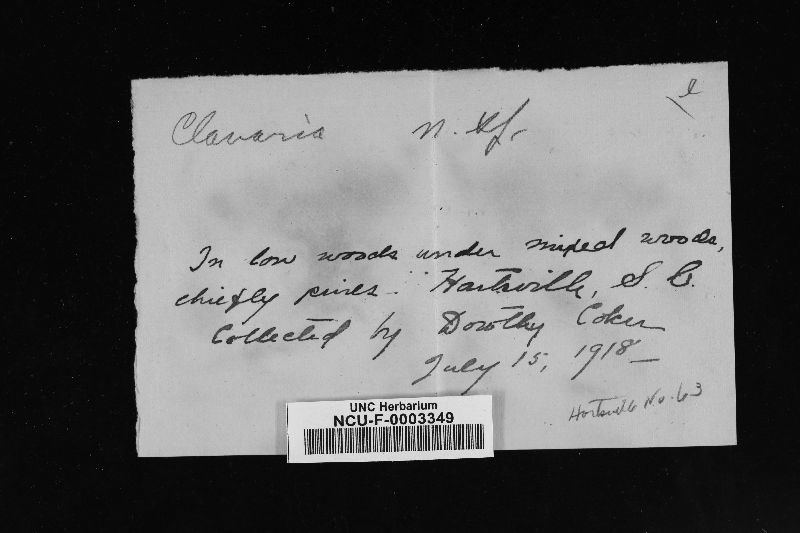 l
Clavaria n.
In low woods under mixed woods,
chiefly pines - Hartsville, S. C.
Collected by Dorothy Coker
July 15, 1918 -
Hartsville No. 63
UNC Herbarium
NCU-F-0003349